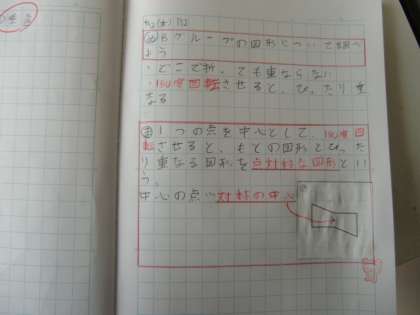 Bグループの図形について調べ
よう
・どこで折っても重ならない
・180度回転させると、ぴったり重
なる
ま 1つの点を中心として、180度回
転させると、もとの図形とぴった
り重なる図形を点対称な図形とい
う。
中心の点…対称の中心